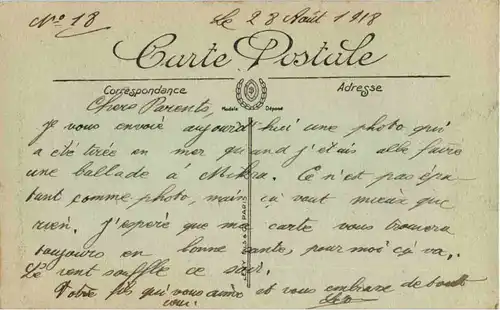 No 18
Le 28 Août 1918
Carte Postale
Correspondance
Adresse
Modèle Déposé
Chers Parents,
Je vous envoie aujourd'hui une photo qui
a été tirée en mer quand j'étais allé faire
une ballade à Mikra. Ce n'est pas épa
tant comme photo, mais ça vaut mieux que
rien. J'espère que ma carte vous trouvera
toujours en bonne santé, pour moi ça va.
Le vent souffle ce soir.
Votre fils qui vous aime et vous embrasse de tout
cœur.